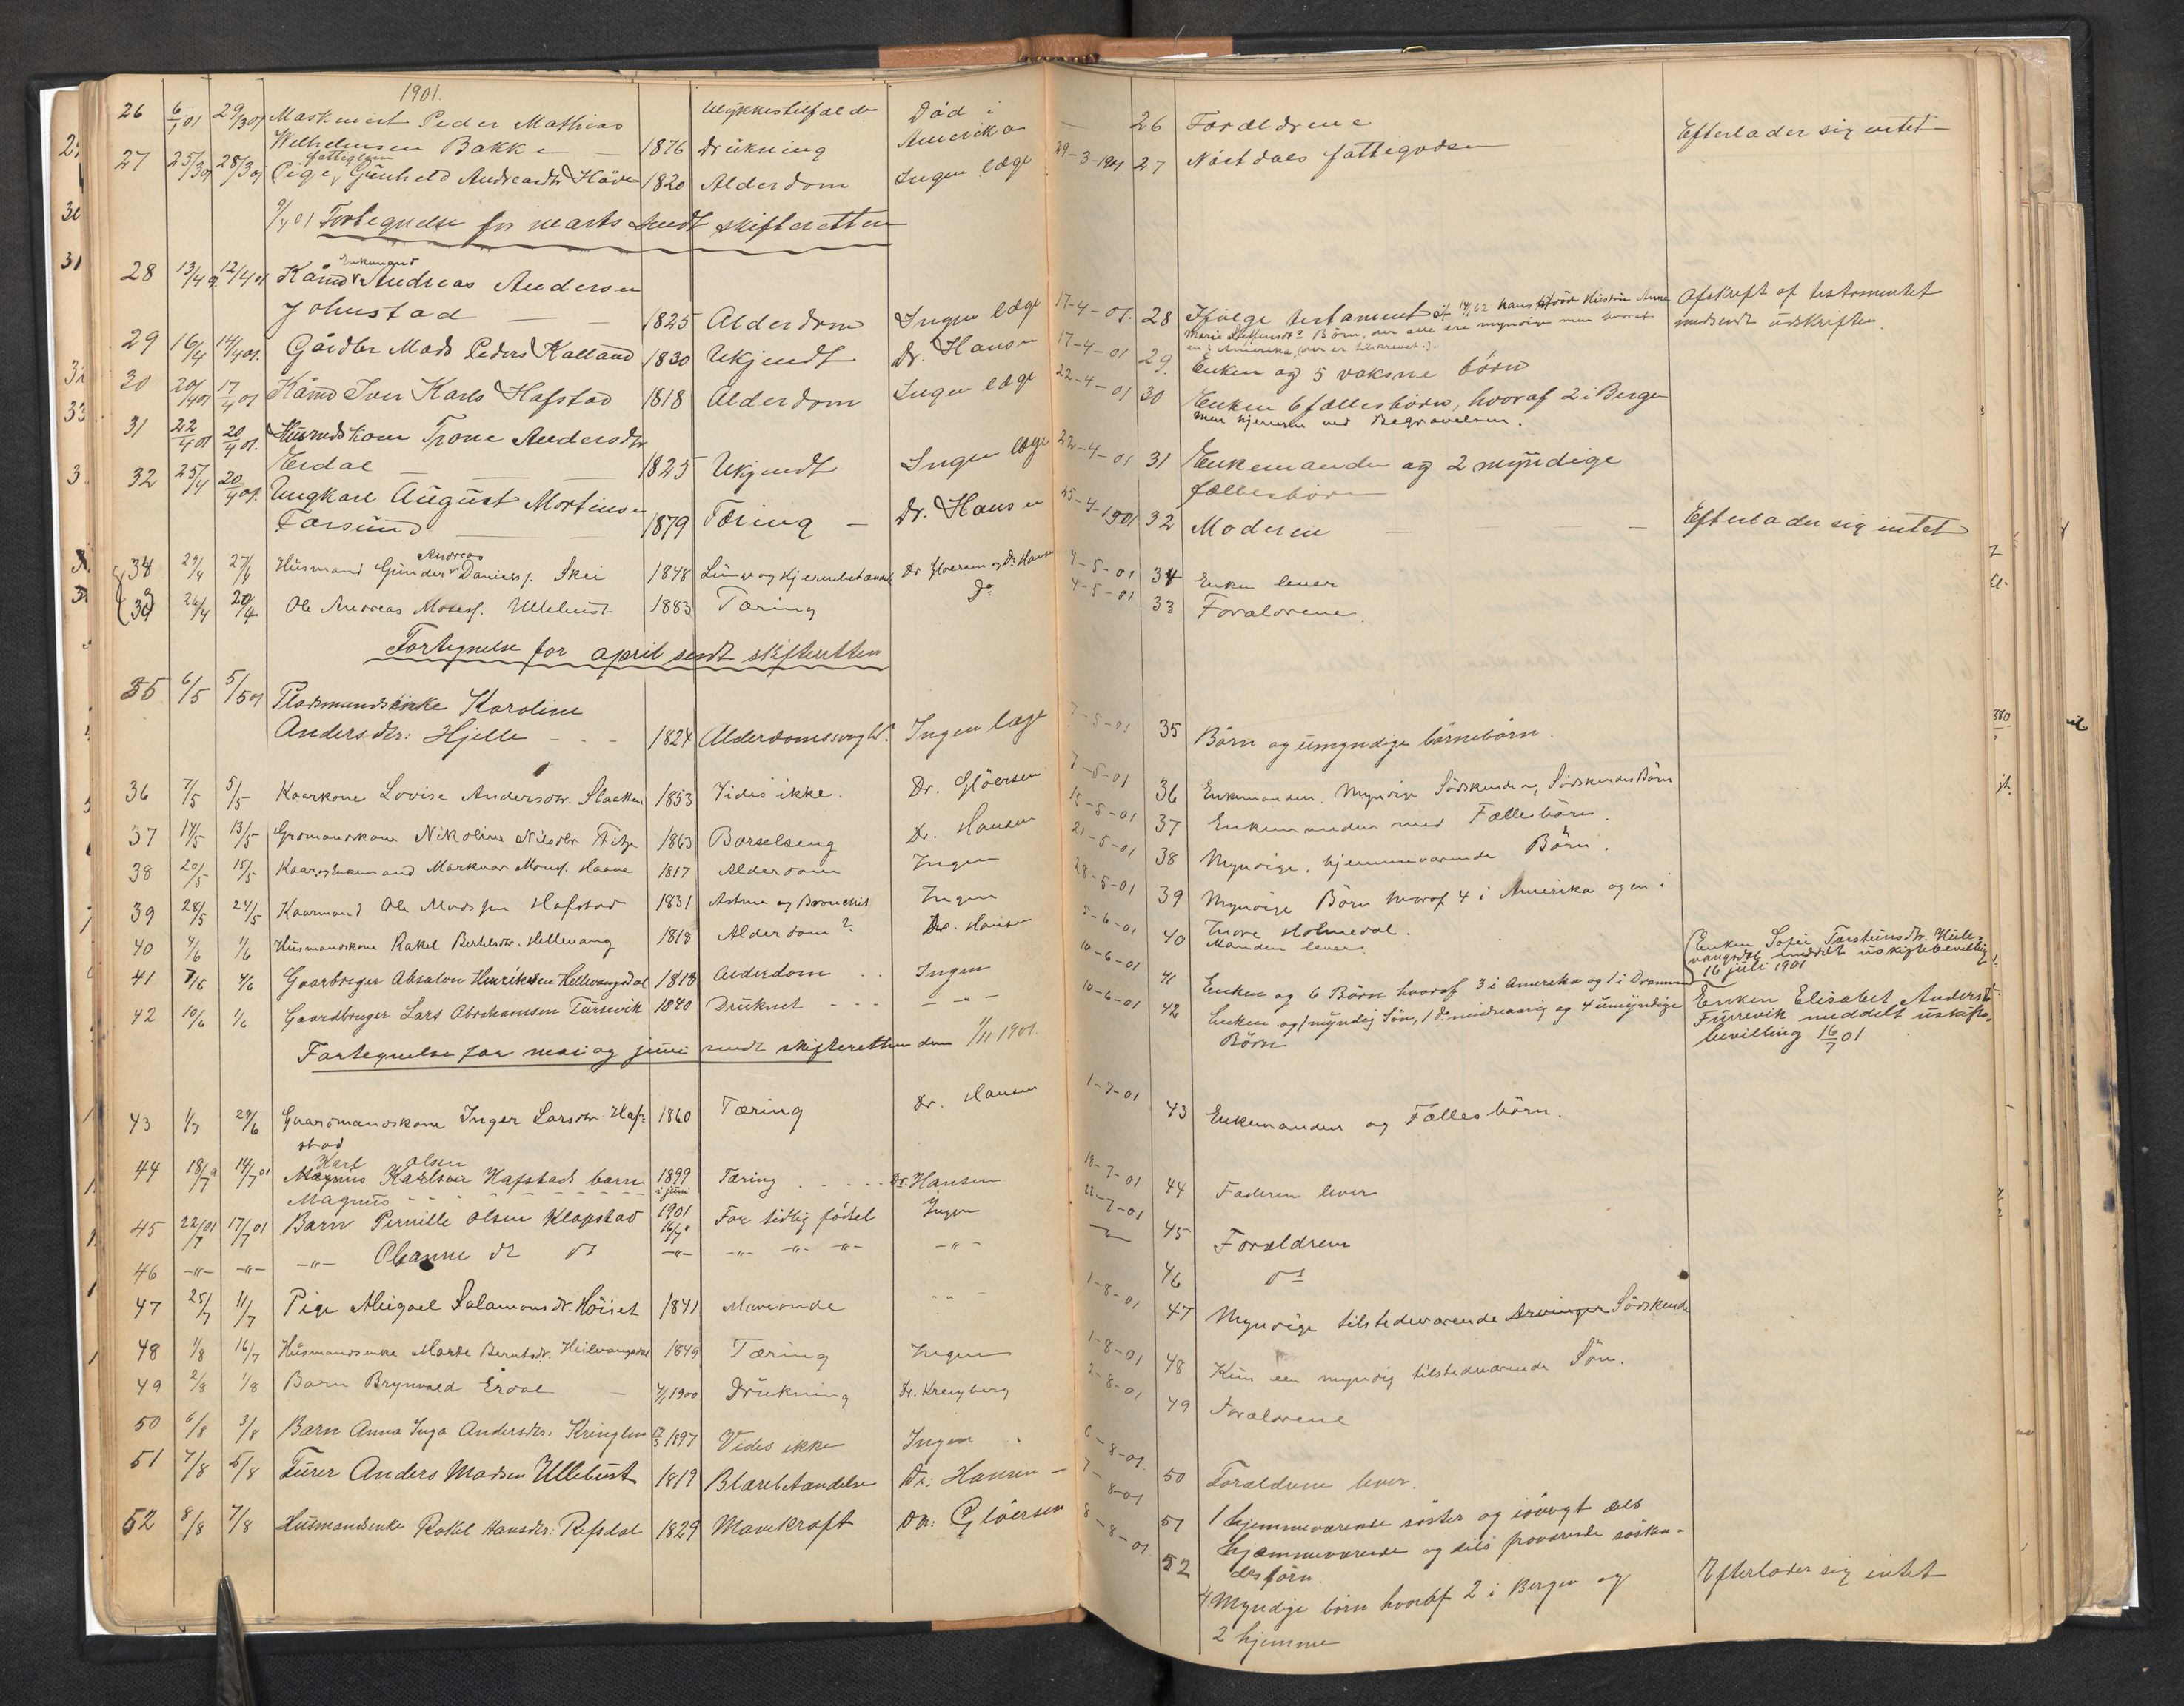 1901.
26 6/1 01 29/3 01 Maskinist Peder Mathias Ulykkestilfælde Död i — 26 Forældrene Efterlader sig intet
Wilhelmsen Bakke — 1876 drukning Amerika
27 25/3 01 28/3 01 Pige, fattiglem Gunhild Andreasdtr 1820 Alderdom Ingen læge 29-3-1901 27
9/4 01 Fortegnelse for marts sendt skifteretten
28 13/4 12/4 01 Kårmd Enkemand Andreas Andersen
Johnstad — — 1825 Alderdom Ingen læge 17-4-01. 28 Ifölge testament Afskrift af testamentet
medsendt udskriften.
29 16/4 14/4 01. Gårdbr Mads Peders Kalland 1830 Ukjendt Dr. Hansen 17-4-01 29. Enken og 5 voksne börn
30 20/4 01 17/4 01 Kårmd Iver Karls Hafstad 1818 Alderdom Ingen læge 22-4-01 30 Enken 6 fællesbörn, hvoraf 2 i Bergen
men hjemme ved Begravelsen.
31 22/4 01 20/4 01. Husmdskone Trone Andersdtr
Erdal — — 1825 Ukjendt Ingen læge 22-4-01 31 Enkemanden og 2 myndige
fællesbörn
32 25/4 20/4 01. Ungkarl August Mortinsen
Farsund — 1879 Tæring — Dr. Hansen 25-4-1901 32 Moderen — — Efterlader sig intet
34 29/4 27/4 Husmand Gunder Andreas Daniels. Skei 1848 Dr Gloersen og Dr Hansen 4-5-01 34 Enken lever
33 26/4 20/4 Ole Andreas Moses. Ullebust 1883 Tæring Do 4-5-01 33 Forældrene.
Fortegnelse for april sendt skifteretten
35 6/5 5/5 01 Pladsmandsenke Karoline
Andersdtr: Hjelle - - - 1824 Alderdomssvaghd. Ingen læge 7-5-01 35 Börn og umyndige börnebörn.
36 7/5 5/5 Kaarkone Lovise Andersdtr. Slaatten 1853 Vides ikke. Dr. Glöersen 7-5-01 36 Enkemanden. Myndige Södskende og SödskendesBörn
37 14/5 13/5 Grdmandskone Nikoline Nilsdtr Fitje 1863 Barselseng Dr. Hansen 15-5-01 37 Enkemanden med Fællesbörn.
38 20/5 15/5 Kaar og Enkemand Markvar Mons. Haave 1817 Alderdom Ingen 21-5-01 38 Myndige, hjemmeværende Börn.
39 28/5 24/5 Kaarmand Ole Madssen Hafstad 1831 Astma og Bronchit Ingen 28-5-01 39 Myndige Börn hvoraf 4 i Amerika og en i
Indre Holmedal.
40 4/6 1/6 Husmandskone Rakel Bertelsdtr. Hellevang 1818 Alderdom? Dr. Hansen 5-6-01 40 Manden lever.
41 8/6 4/6 Gaardbruger Absalon Henriksen Hellevangsdal 1818 Alderdom - - Ingen 10-6-01 41 Enken og 6 Börn hvoraf 3 i Amerika og 1 i Drammen
Enken Sofie Torsteinsdtr. Helle-
vangsdal meddelt uskiftebevilling
16 juli 1901
42 10/6 1/6 Gaardbruger Lars Abrahamsen Furevik 1840 Druknet - - - - " - 10-6-01 42 Enken og 1 myndig Sön, 1 do mindreaarig og 4 umyndige
Börn
Enken Elisabet Andersd.
Furrevik meddelt uskifte-
bevilling 16/7 01
Fortegnelse for mai og juni sendt skifteretten den 1/11 1901.
43 1/7 29/6 Gaardmandskone Inger Larsdtr. Haf- 1860 Tæring Dr. Hansen 1-7-01 43 Enkemanden og Fællesbörn.
stad
44 18/7 14/7 01 Karl Olsen
Magnus Karlsen Hafstads barn 1899 Tæring - - - - Dr. Hansen 18-7-01 44 Faderen lever
Magnus i juni
45 22/7 01 17/7 01 Barn Pernille Olsen Klopstad 1901 16/7 For tidlig födsel Ingen 22-7-01 45 Forældrene
46 -"- -"- -"- Oleanne do do -"- -"- -"- -"- -"- 46 do
47 25/7 11/7 Pige Abigael Salamonsdtr. Höiset 1841 Maveonde - " - 1-8-01 47 Myndige tilstedeværende Arvinger Södskende
48 1/8 16/7 Husmandsenke Marte Berntsdtr. Heilevangsdal 1849 Tæring Ingen 1-8-01 48 Kun een myndig tilstedeværende Sön.
49 2/8 1/8 Barn Brynvald Erdal — 1900 Drukning Dr. Kreyberg 2-8-01 49 Forældrene
50 6/8 3/8 Barn Anna Inga Andersdtr: Kringlen 1897 Vides ikke Ingen 6-8-01. 50 Forældrene lever.
51 7/8 5/8 Furer Anders Madsen Ullebust 1819 Blærebetændelse Dr: Hansen — 7-8-01 51 1 hjemmeværende söster og iövrigt dels
hjemmeværende og dels fraværende sösken-
desbörn.
52 8/8 7/8 Husmandsenke Rakel Hansdtr: Refsdal 1829 Mavekræft Dr: Glöersen 8-8-01. 52 4 Myndige börn hvoraf 2 i Bergen og Efterlader sig intet
2 hjemme